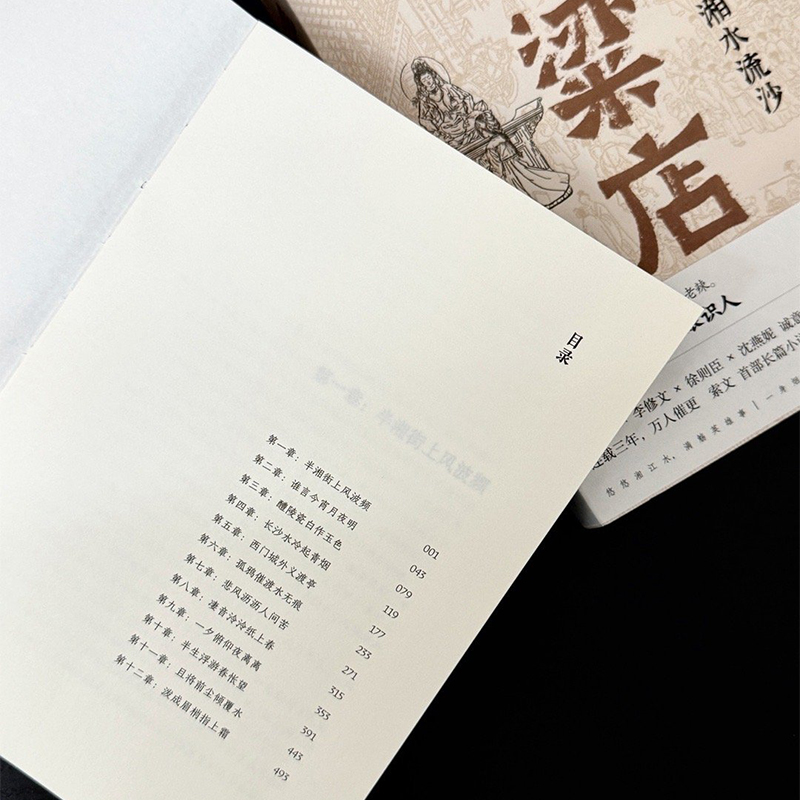 目录
第一章：半湘街上风波频 001
第二章：谁言今宵月夜明 043
第三章：醴陵瓷白作玉色 079
第四章：长沙水冷起青烟 119
第五章：西门城外义渡亭 177
第六章：孤鸦催渡水无痕 233
第七章：悲风沥沥人问苦 271
第八章：凄音泠泠纸上春 315
第九章：一夕俯仰夜离离 353
第十章：半生浮游春怅望 391
第十一章：且将前尘倾覆水 443
第十二章：泼成眉梢指上霜 493
第一章：半湘街上风波频
梁店
湘水流沙
老辣。
识人
李修文×徐则臣×沈燕妮 诚意
连载三年，万人催更 索文 首部长篇小说
悠悠湘江水，满觞英雄事｜一身烟